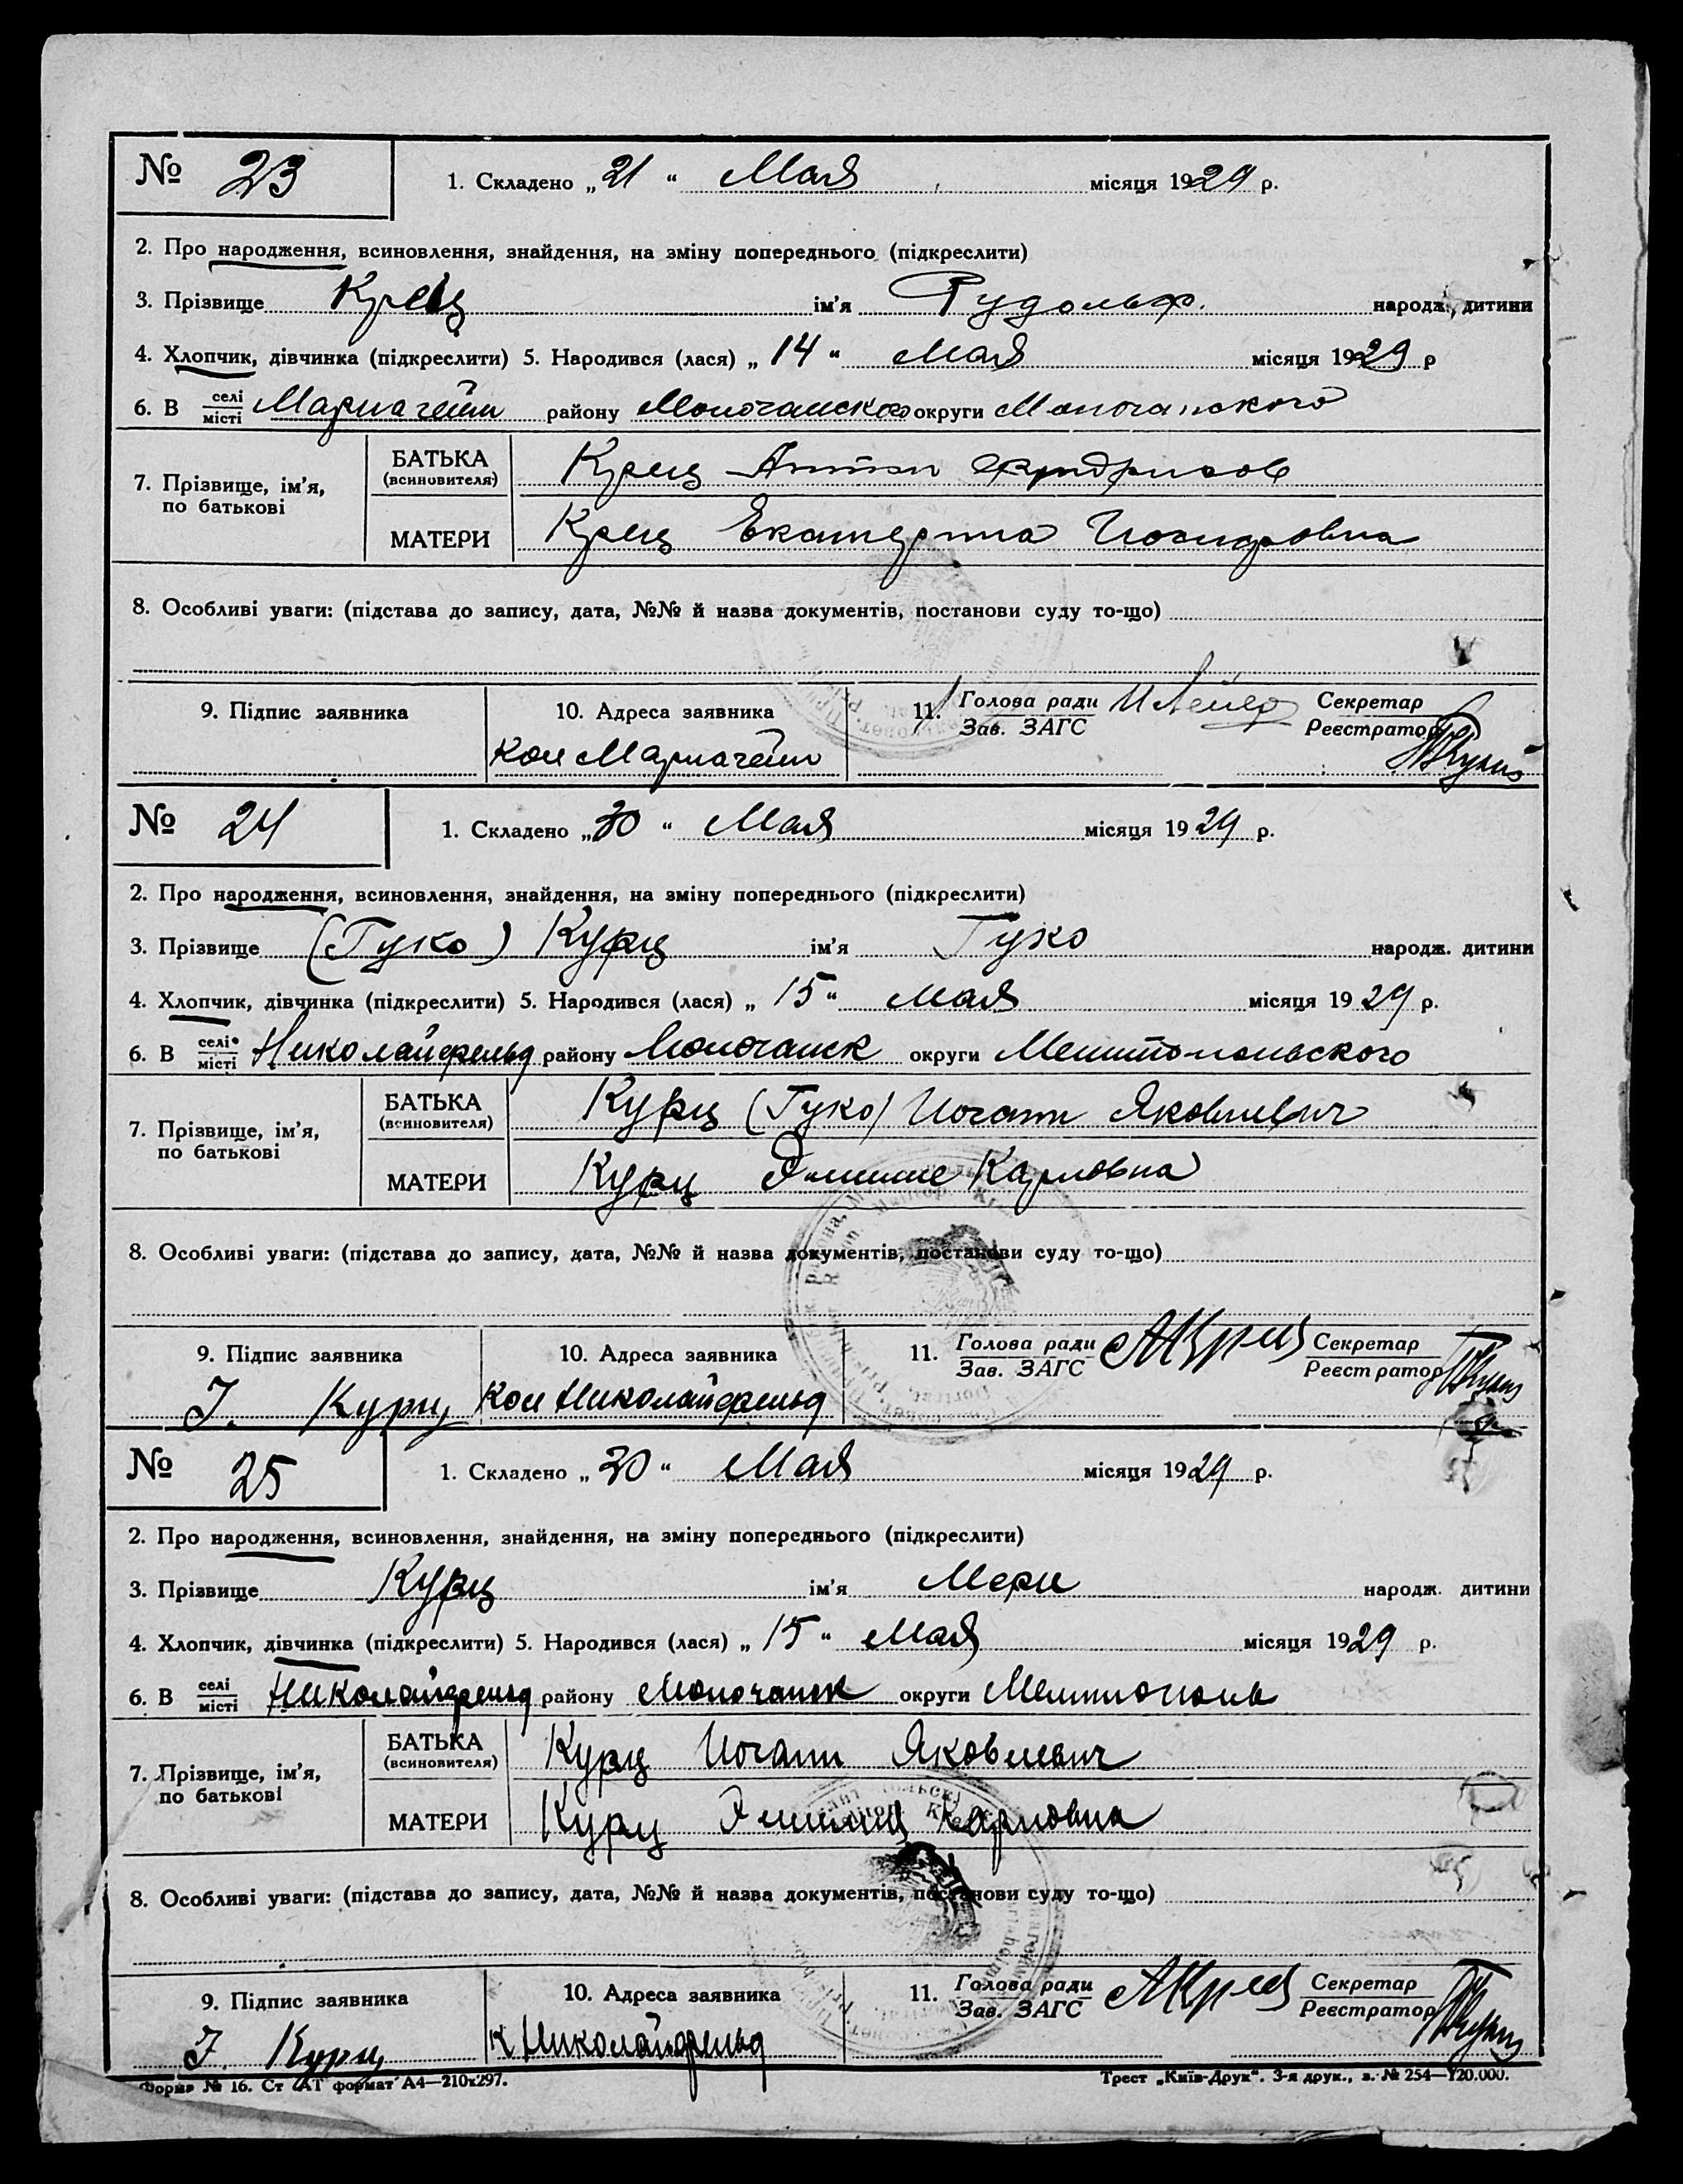 № 23 1. Складено „21“ Мая місяця 1929 р.
2. Про народження, всиновлення, знайдення, на зміну попереднього (підкреслити)
3. Прізвище Крец ім'я Рудольф. народж. дитини
4. Хлопчик, дівчинка (підкреслити) 5. Народився (лася) „14“ Мая місяця 1929 р
6. В селі місті Мариагейм району Молочанского округи
7. Прізвище, ім'я, по батькові
БАТЬКА (всиновителя) Крец Антон
МАТЕРИ Крец Екатерина
8. Особливі уваги: (підстава до запису, дата, №№ й назва документів, постанови суду то-що)
9. Підпис заявника 10. Адреса заявника 11. Голова ради Зав. ЗАГС Секретар Реєстратор
Кол Мариагейм
№ 24 1. Складено „30“ Мая місяця 1929 р.
2. Про народження, всиновлення, знайдення, на зміну попереднього (підкреслити)
3. Прізвище (Гуко) Курц ім'я Гуко народж. дитини
4. Хлопчик, дівчинка (підкреслити) 5. Народився (лася) „15“ Мая місяця 1929 р.
6. В селі місті Николайфельд району Молочанск округи Мелитопольского
7. Прізвище, ім'я, по батькові
БАТЬКА (всиновителя) Курц (Гуко) Иоганн Яковлевич
МАТЕРИ Курц Карловна
8. Особливі уваги: (підстава до запису, дата, №№ й назва документів, постанови суду то-що)
9. Підпис заявника 10. Адреса заявника 11. Голова ради Зав. ЗАГС АКрец Секретар Реєстратор
І. Курц Кол Николайфельд
№ 25 1. Складено „30“ Мая місяця 1929 р.
2. Про народження, всиновлення, знайдення, на зміну попереднього (підкреслити)
3. Прізвище Курц ім'я Мери народж. дитини
4. Хлопчик, дівчинка (підкреслити) 5. Народився (лася) „15“ Мая місяця 1929 р.
6. В селі місті Николайфельд району Молочанск округи Мелитополь
7. Прізвище, ім'я, по батькові
БАТЬКА (всиновителя) Курц Иоганн Яковлевич
МАТЕРИ Курц Карловна
8. Особливі уваги: (підстава до запису, дата, №№ й назва документів, постанови суду то-що)
9. Підпис заявника 10. Адреса заявника 11. Голова ради Зав. ЗАГС АКрец Секретар Реєстратор
І. Курц К Николайфельд
Форма № 16. Ст АТ формат А4—210x297. Трест „Київ-Друк“. 3-я друк., з. № 254—120.000.